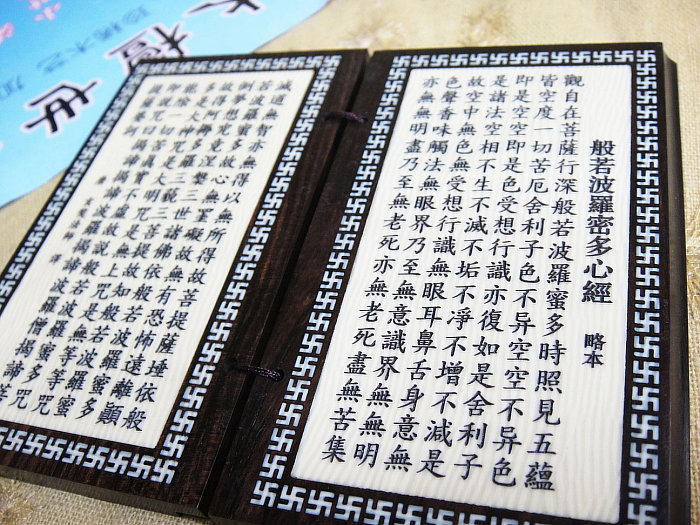 般若波羅密多心經 略本
觀自在菩薩行深般若波羅蜜多時照見五蘊
皆空度一切苦厄舍利子色不异空空不异色
即是空空即是色受想行識亦復如是舍利子
是諸法空相不生不滅不垢不淨不增不減是
故空中無色無受想行識無眼耳鼻舌身意無
色聲香味觸法無眼界乃至無意識界無無明
亦無無明盡乃至無老死亦無老死盡無苦集
滅道無智亦無得以無所得故菩提薩埵依般
若波羅蜜多故心無罣礙故無有恐怖遠離顛
倒夢想究竟涅槃三世諸佛依般若波羅蜜多
故得阿耨多羅三藐三菩提故知般若波羅蜜
多是大神咒是大明咒是無上咒是無等等咒
能除一切苦真實不虛故說般若波羅蜜多咒
即說咒曰揭諦揭諦波羅揭諦波羅僧揭諦菩
玄奘法師 譯